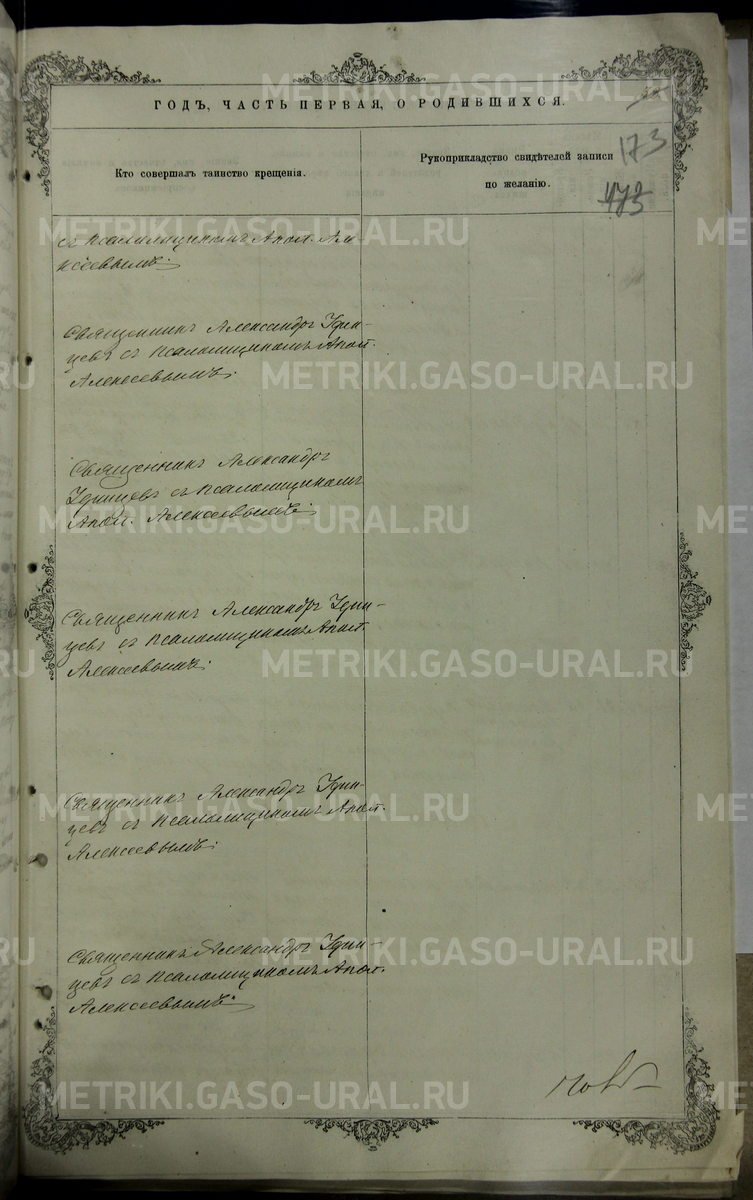 ГОДЪ, ЧАСТЬ ПЕРВАЯ, О РОДИВШИХСЯ.
Кто совершалъ таинство крещенія.
Рукоприкладство свидѣтелей записи
по желанію.
173
473
съ псаломщикомъ Апол. Але-
ксѣевымъ.
Священникъ Александръ Удин-
цевъ съ псаломщикомъ Апол.
Алексѣевымъ.
Священникъ Александръ
Удинцевъ съ псаломщикомъ
Апол. Алексѣевымъ.
Священникъ Александръ Удин-
цевъ съ псаломщикомъ Апол.
Алексѣевымъ.
Священникъ Александръ Удин-
цевъ съ псаломщикомъ Апол.
Алексѣевымъ.
Священникъ Александръ Удин-
цевъ съ псаломщикомъ Апол.
Алексѣевымъ.
METRIKI.GASO-URAL.RU